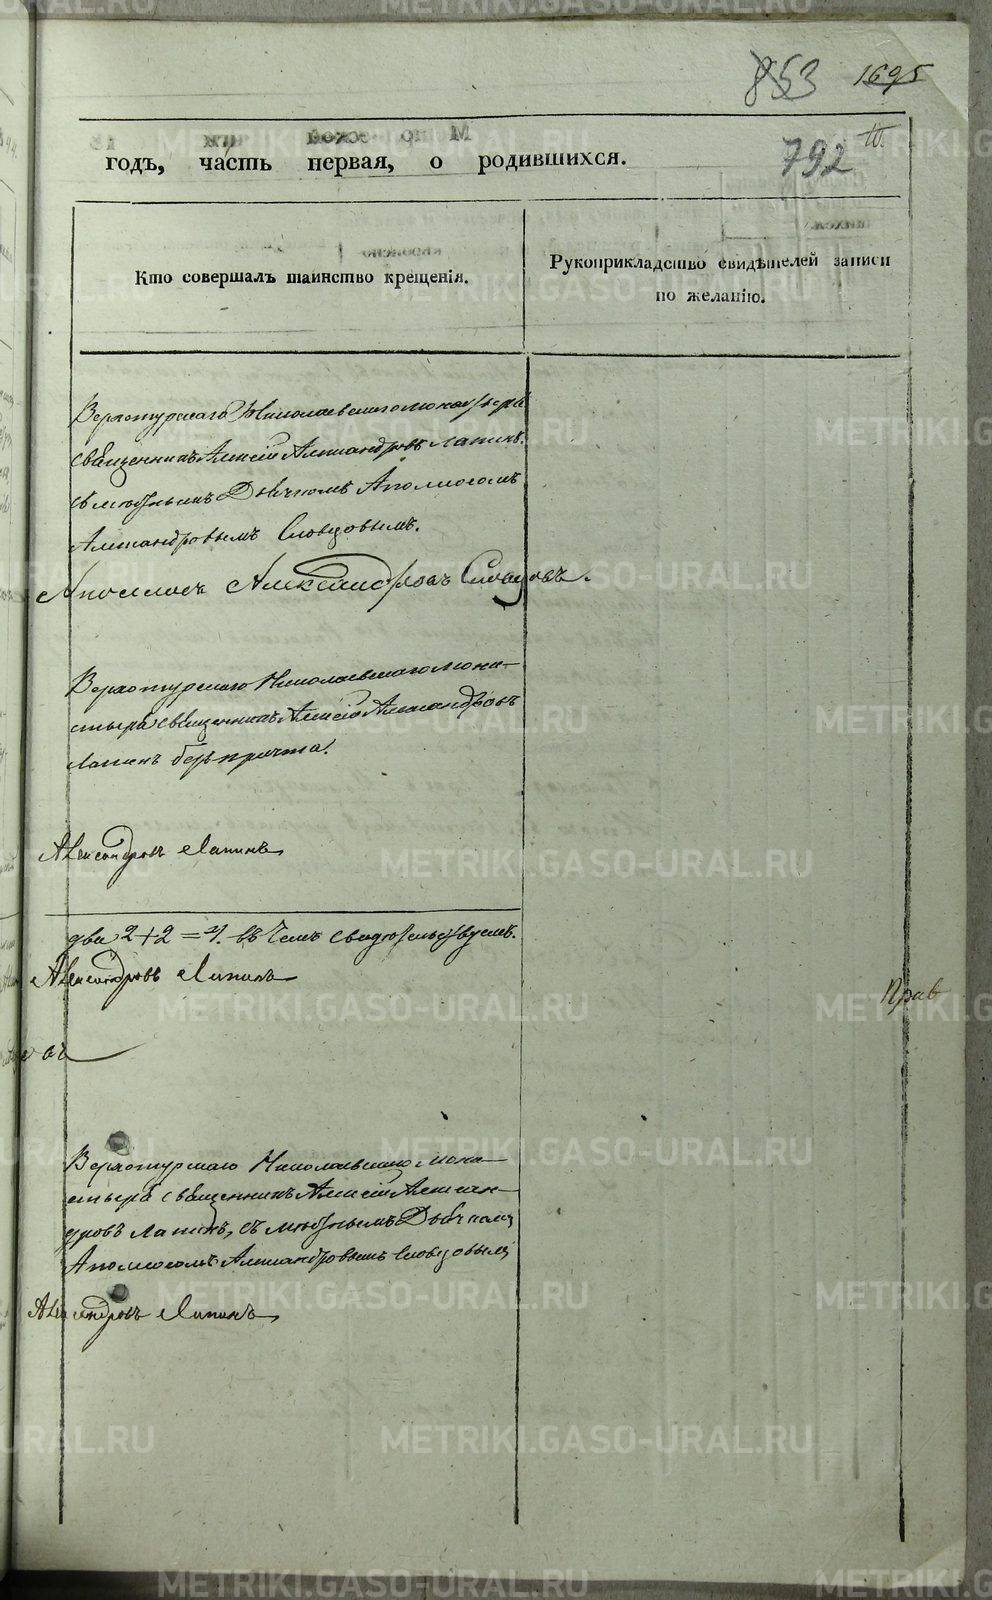 853 1695
792
годъ, часть первая, о родившихся.
Кто совершалъ таинство крещенія.
Рукоприкладство свидѣтелей записи
по желанію.
Верхотурскаго Николаевскаго монастыря
священникъ Алексій Александровъ Лапинъ.
Дьячкомъ Аполлосомъ
Александровымъ Словцовымъ.
Аполлосъ Александровъ Словцовъ.
Верхотурскаго Николаевскаго мона-
стыря священникъ Алексій Александровъ
Лапинъ безъ причта.
Александровъ Лапинъ
два 2+2=4. въ чемъ свидѣтельствуемъ.
Александровъ Лапинъ
въ
Прав
Верхотурскаго Николаевскаго мона-
стыря священникъ Алексій Алексан-
дровъ Лапинъ, съ Дьячкомъ
Аполлосомъ Александровымъ Словцовымъ
Александровъ Лапинъ
METRIKI.GASO-URAL.RU